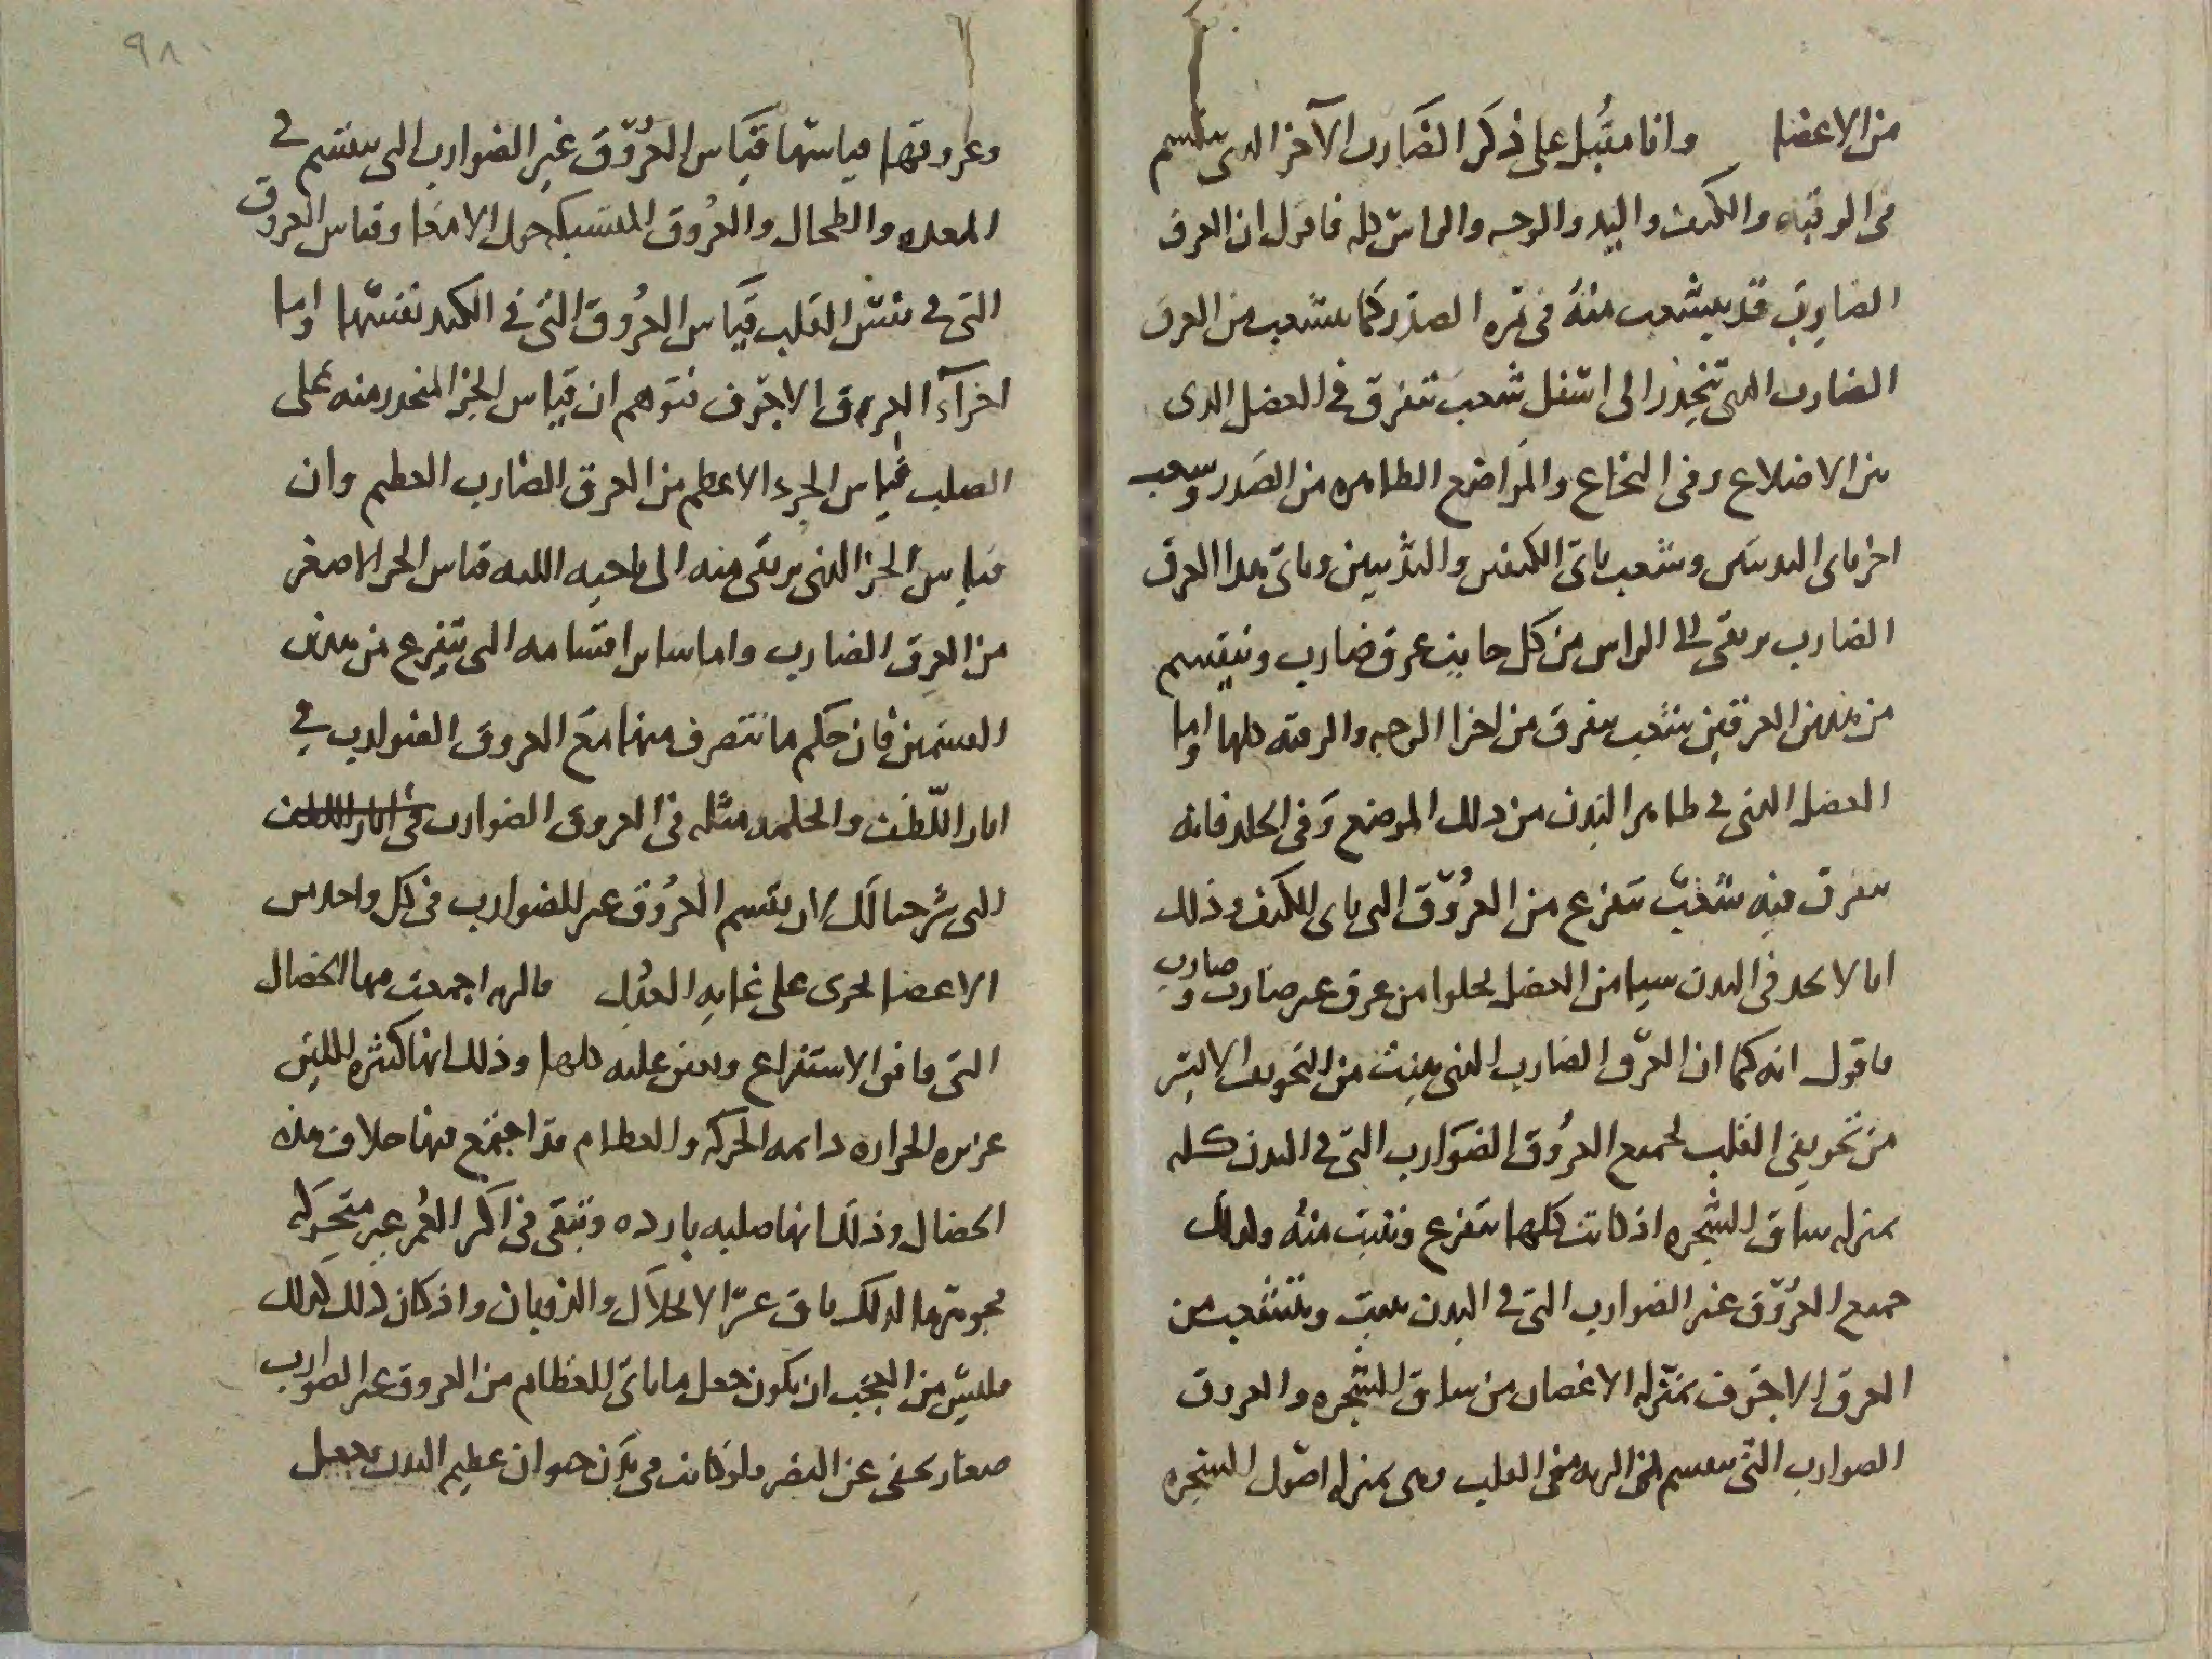 من الاعضا وانا مقبل على ذكر الضارب الآخر الدى ينقسم
فى الرقبه والكتف واليد والوجه والراس كله فاقول ان العرق
الضارب قد يتشعب منه فى قره الصدر كما يتشعب من العرق
الضارب الذى تنحدر الى اسفل شعب تتفرق فى العضل الدى
بين الاضلاع وفى النخاع والمواضع الظاهره من الصدر وشعب
اخر ياتى الثديين وشعب ياتى الكتفين واليدين وياتى هدا العرق
الضارب يرتقى الى الراس من كل جانب عرق ضارب وينقسم
من هذين العرقين شعب يتفرق من اجزا الوجه والرقبه كلها واما
العضل الذى فى ظاهر البدن من ذلك الموضع وفى الجلد فانه
يتفرق فيه شعب تتفرع من العروق التى ياتى الكتف وذلك
انا لا نجد فى البدن شيا من العضل يخلوا من عرق غير ضارب وضارب
فاقول انه كما ان العرق الضارب الذى ينبت من التجويف الايسر
من تجويفى القلب لجميع العروق الضوارب التى فى البدن كله
بمنزله ساق الشجره اذ كانت كلها تتفرع وتنبت منه ولذلك
جميع العروق غير الضوارب التى فى البدن ينبت ويتشعب من
العرق الاجوف بمنزله الاغصان من ساق الشجره والعروق
الضوارب التى تنقسم فى الريه من القلب هى بمنزله اصول الشجره
٩٨
وعروقها قياسها قياس العروق غير الضوارب التى ينقسم فى
المعده والطحال والعروق المشتبكه حول الامعا وقياس العروق
التى فى نفس القلب قياس العروق التى فى الكبد نفسها واما
اجزآء العروق الاجوف فتوهم ان قياس الجز المنحدر منه على
الصلب قياس الجزء الاعظم من العرق الضارب العظيم وان
قياس الجز الذى يرتقى منه الى ناحيه اللبه قياس الجز الاصغر
من العرق الضارب واما ساير اقسامه التى يتفرع من هذين
القسمين فان حكم ما تتصرف منها مع العروق الضوارب فى
اثار اللطف والحكمه مثله فى العروق الضوارب
التى شرحنا لك ان تقسم العروق غير الضوارب فى كل واحد من
الاعضا يجرى على غايه العدل فالريه اجتمعت فيها الخصال
التى فى الاستفراغ ويعين عليه كلها وذلك انها كثيره اللين
غزيره الحراره دايمه الحركه والعظام قد اجتمع فيها خلاف هذه
الخصال وذلك انها صلبه بارده وتبقى فى اكثر العمر غير متحركه
فجوهرها لذلك باق عسر الانحلال والذوبان واذ كان ذلك كذلك
فليس من العجب ان يكون جعل ما ياتى العظام من العروق غير الضوارب
صغار يخفى عن البصر ولو كانت فى بدن حيوان عظيم البدن يجعل